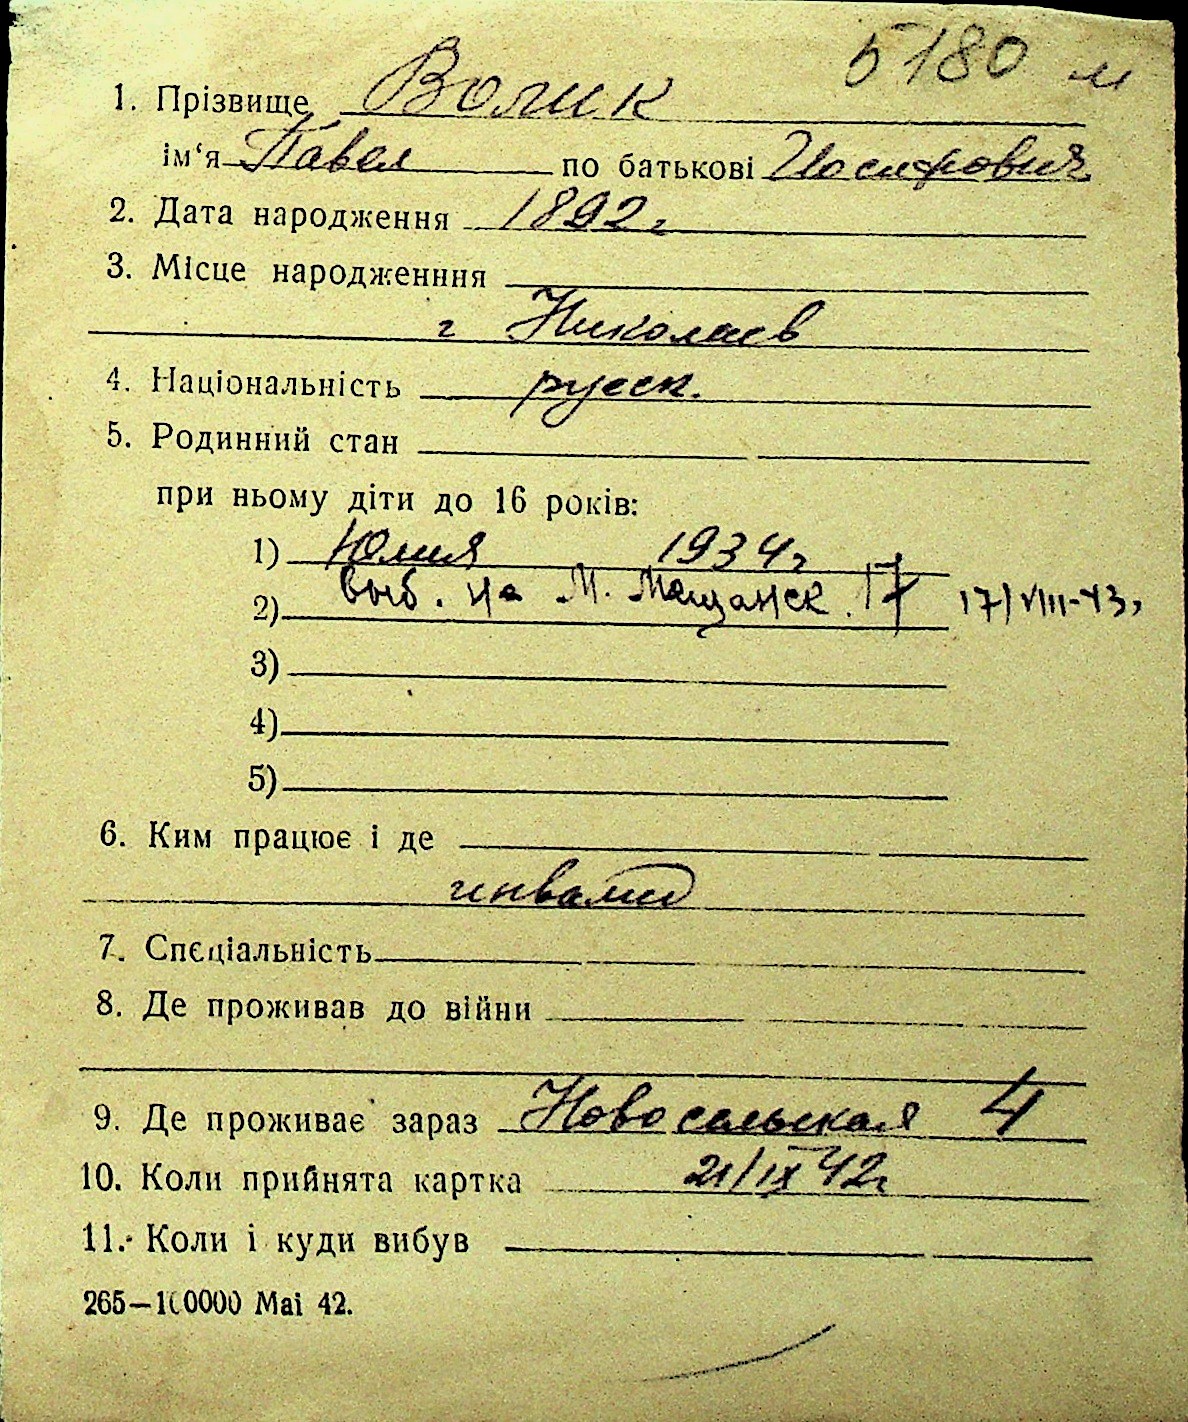 5180 м
1. Прізвище Волик
ім‘я Павел по батькові Иосифович
2. Дата народження 1892 г
3. Місце народженння
г Николаев
4. Національність русск.
5. Родинний стан
при ньому діти до 16 років:
1) Юлия 1934 г
2) выб. на М. Мещанск. 17 17/VIII-43г
3)
4)
5)
6. Ким працює і де
инвалид
7. Спеціальність
8. Де проживав до війни
9. Де проживає зараз Новосельская 4
10. Коли прийнята картка 21/IX 42г
11. Коли і куди вибув
265—100000 Mai 42.